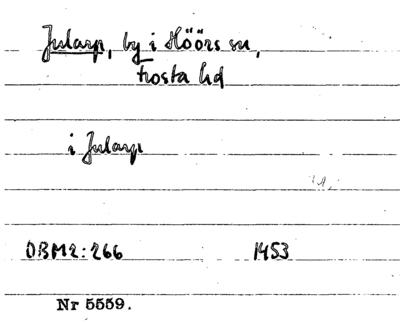 Jularp, by i Höörs sn,
Frosta hd
i Jularp
DBM2:266 1453
Nr 5559.